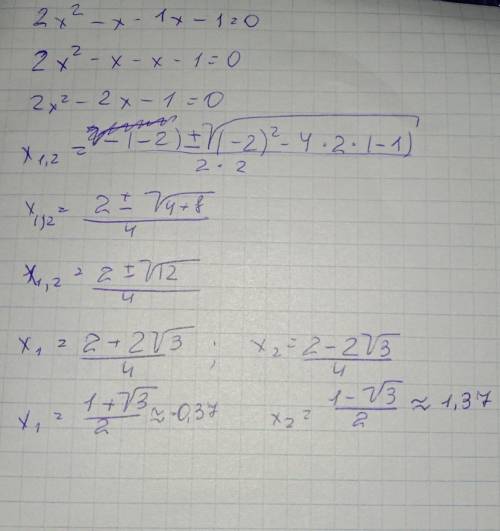 2x² - x - 1x - 1 = 0
2x² - x - x - 1 = 0
2x² - 2x - 1 = 0
x₁,₂ = -(-2) ± √(-2)² - 4 · 2 · (-1) / 2 · 2
x₁,₂ = 2 ± √4+8 / 4
x₁,₂ = 2 ± √12 / 4
x₁ = 2 + 2√3 / 4 ; x₂ = 2 - 2√3 / 4
x₁ = 1 + √3 / 2 ≈ -0,37 x₂ = 1 - √3 / 2 ≈ 1,37